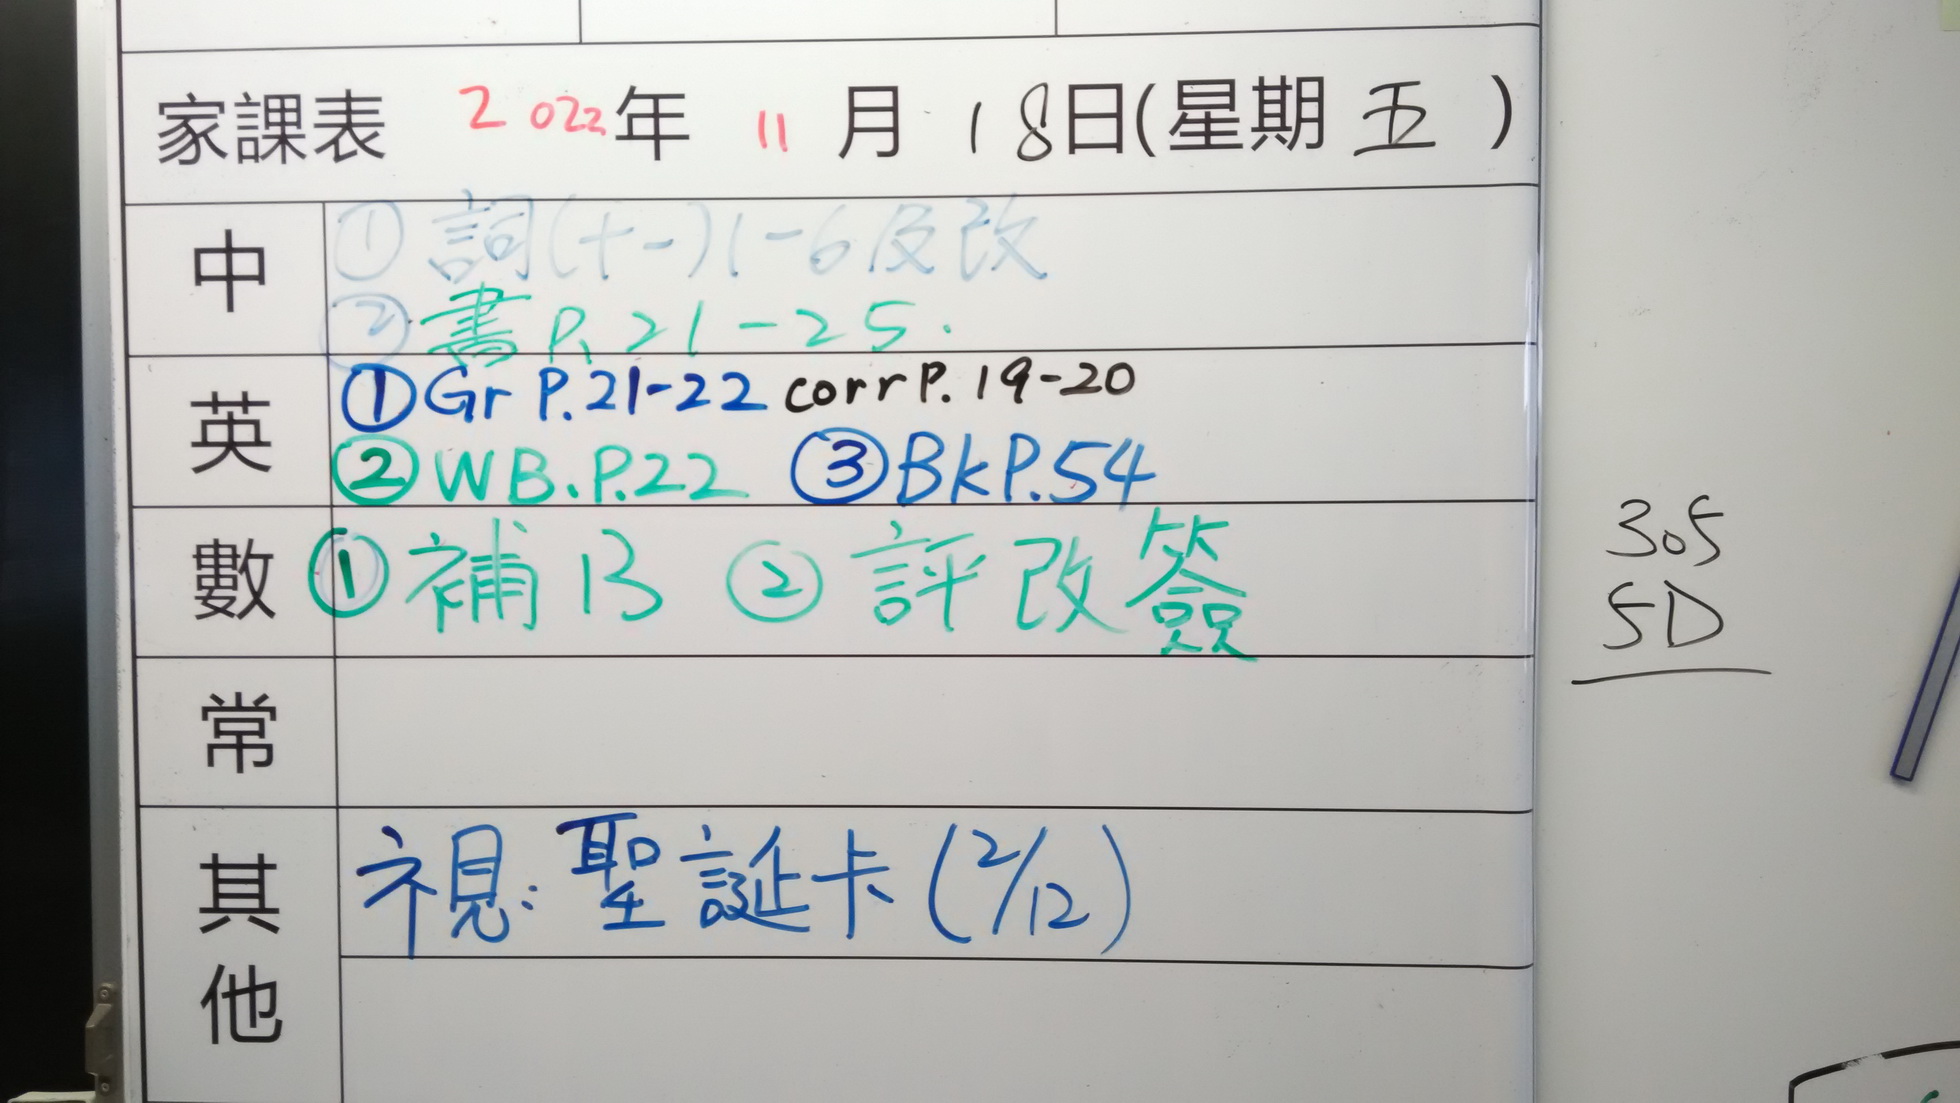 家課表 2022年 11月 18日(星期五)
中
①詞(十一)1-6及改
②書P.21-25.
英
①Gr P.21-22 corrP.19-20
②WB.P.22 ③BkP.54
數
①補13 ②評改簽
常
其他
視:聖誕卡(2/12)
305
5D